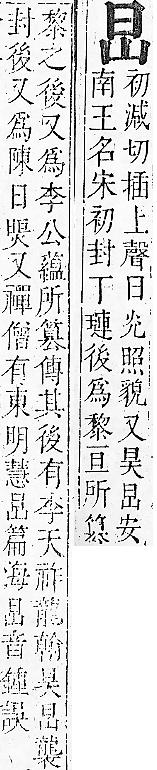 昷
初減切插上聲日光照貌又昊昷安
南王名宋初封丁璉後爲黎亘所篡
黎之後又爲李公蘊所篡傳其後有李天祚龍翰昊昷襲
封後又爲陳日煚又禪僧有東明慧昷篇海昷音鍾誤